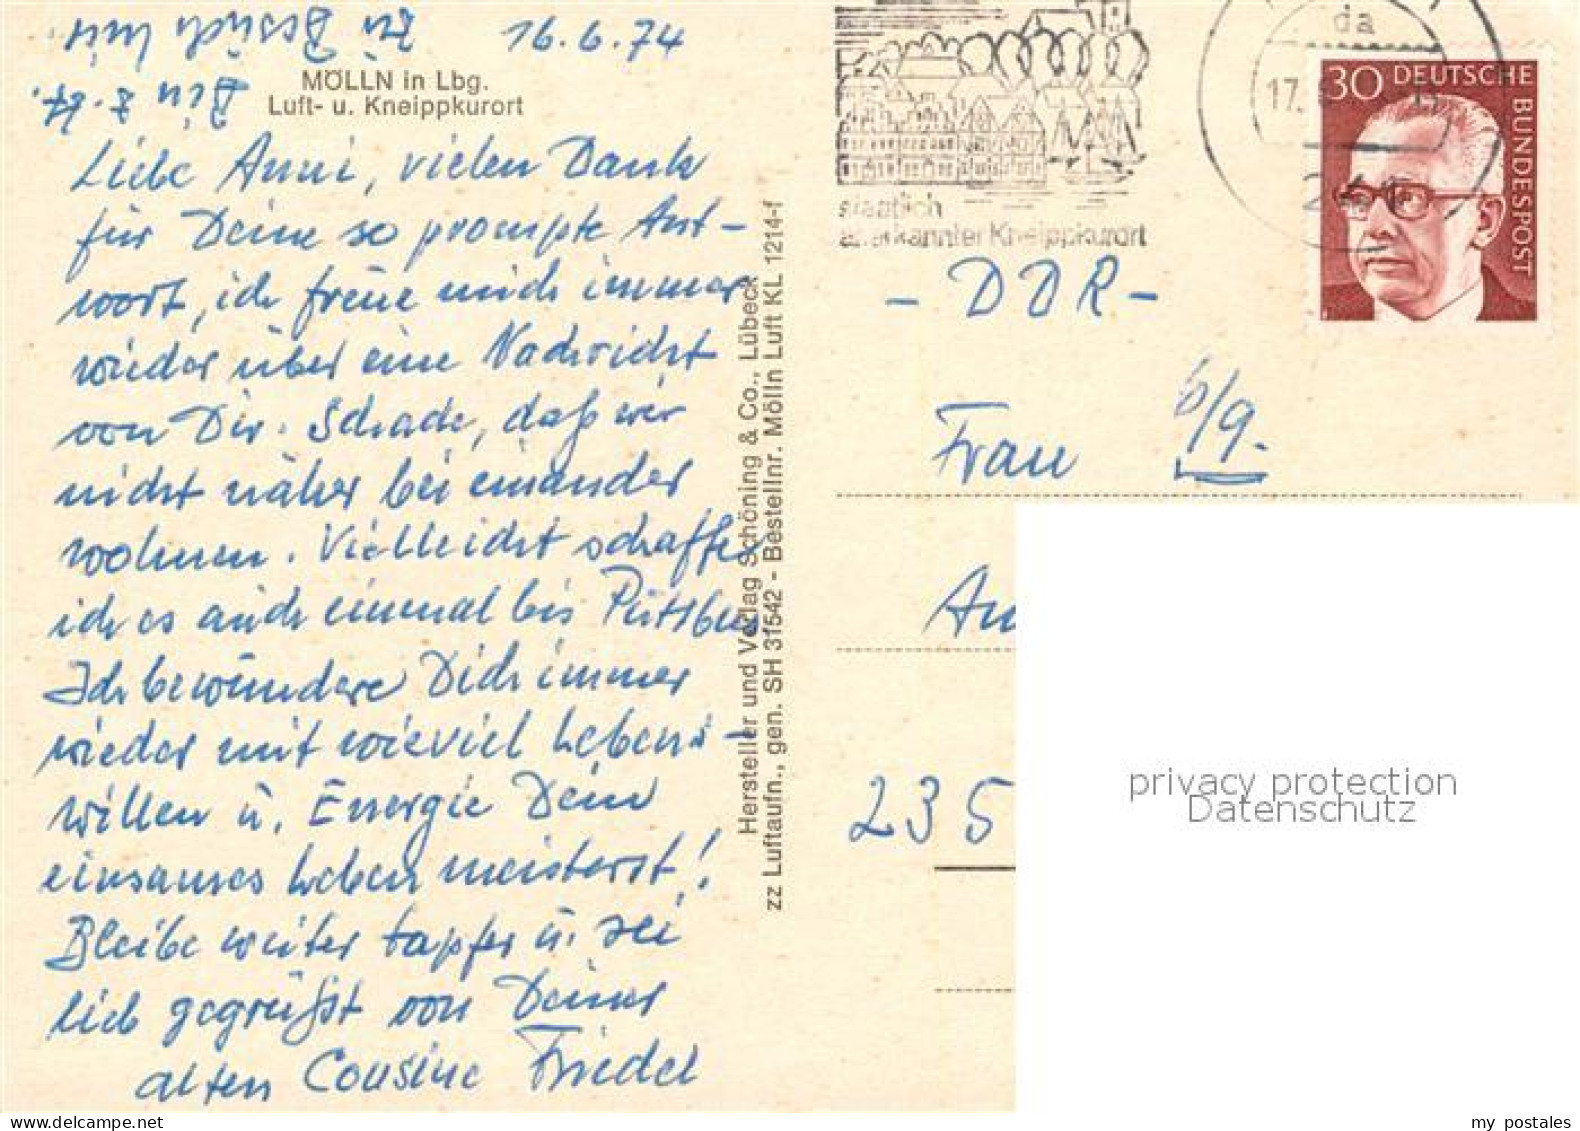 16.6.74
MÖLLN in Lbg.
Luft- u. Kneippkurort
Liebe Anni, vielen Dank
für Deine so prompte Ant-
wort, ich freue mich immer
wieder über eine Nachricht
von Dir. Schade, daß wir
nicht näher bei einander
wohnen. Vielleicht schaffe
ich es auch einmal bis
Ich bewundere Dich immer
wieder mit wieviel Lebens-
willen u. Energie Dein
einsames Leben meisterst!
Bleibe weiter tapfer u. sei
lieb gegrüßt von Deiner
alten Cousine Friedel
zu Besuch hier
Bin z. Zt.
Hersteller und Verlag Schöning & Co., Lübeck
zz Luftaufn., gen. SH 31542 - Bestellnr. Mölln Luft KL 1214-f
staatlich
anerkannter Kneippkurort
da
17.
241
30 DEUTSCHE BUNDESPOST
- DDR -
6/9.
Frau
An
235
privacy protection
Datenschutz
my postales